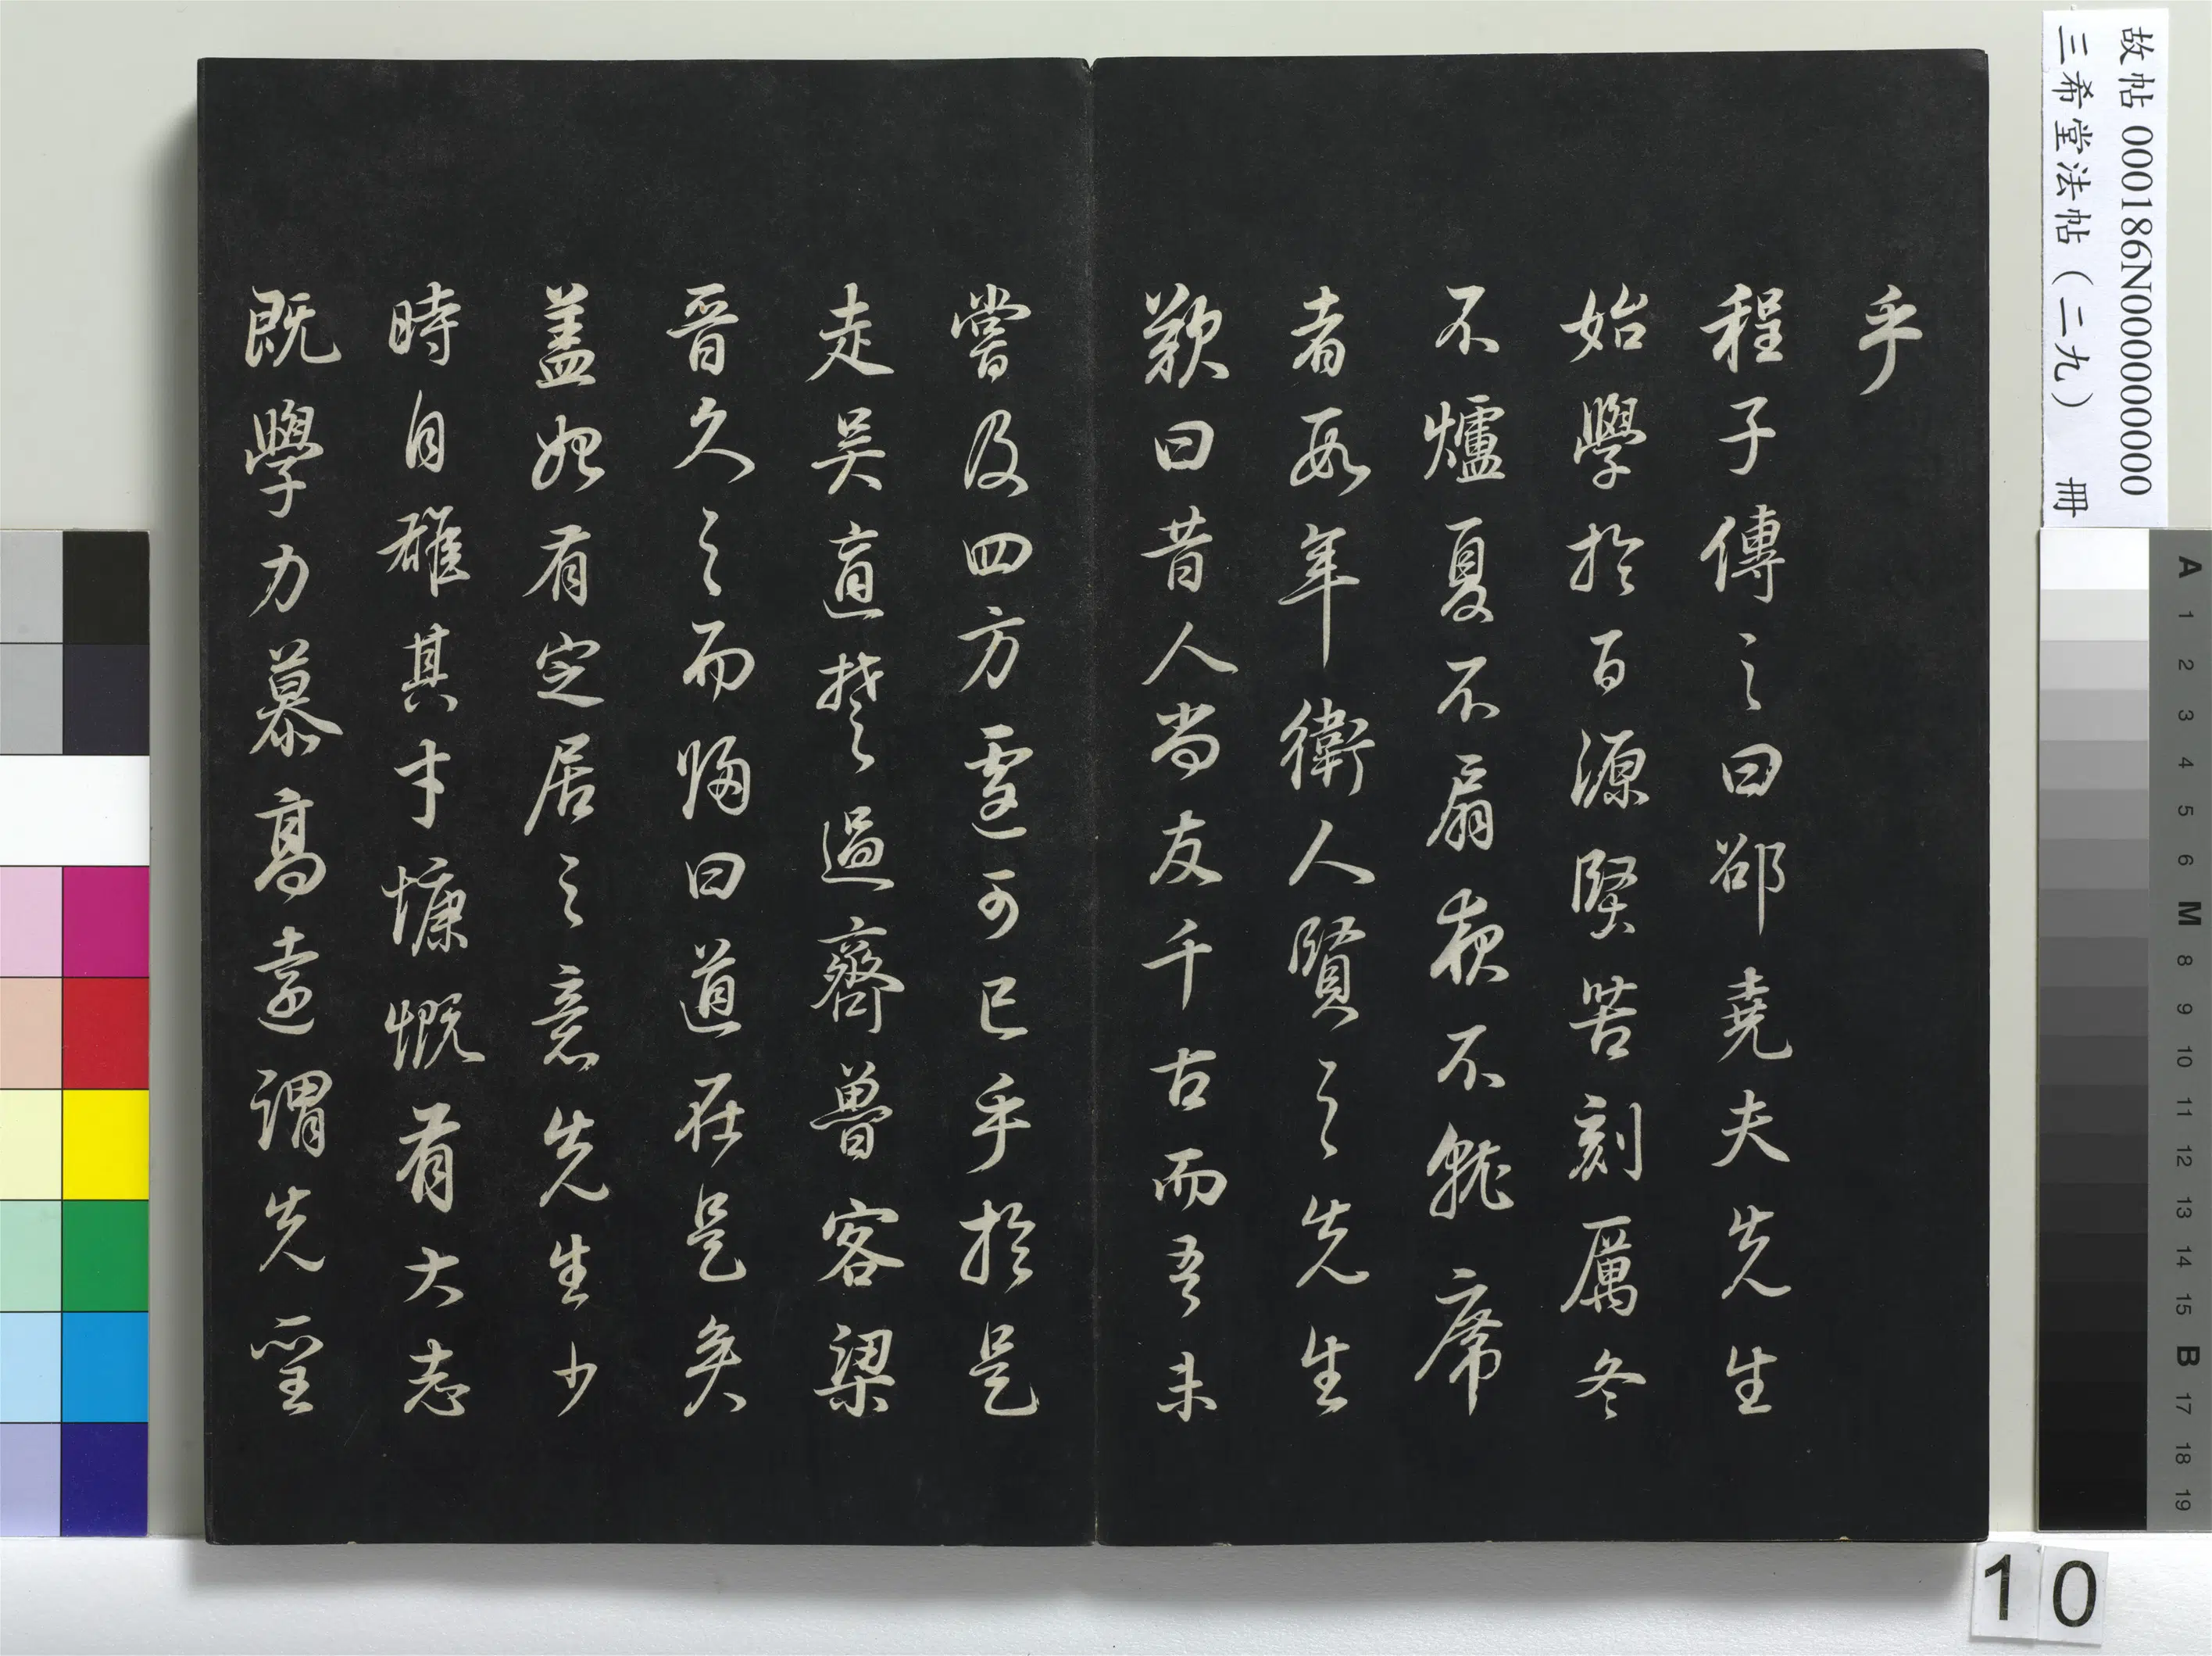 故帖 000186N000000000
三希堂法帖（二九） 冊
乎
程子傳之曰邵堯夫先生
始學於百源堅苦刻厲冬
不爐夏不扇夜不就席
者數年衛人賢之先生
歎曰昔人尚友千古而吾未
嘗及四方遽可已乎於是
走吳適楚過齊魯客梁
晉久之而歸曰道在是矣
盖始有定居之意先生少
時自雄其才慷慨有大志
既學力慕高遠謂先聖
A 1 2 3 4 5 6 M 8 9 10 11 12 13 14 15 B 17 18 19
10